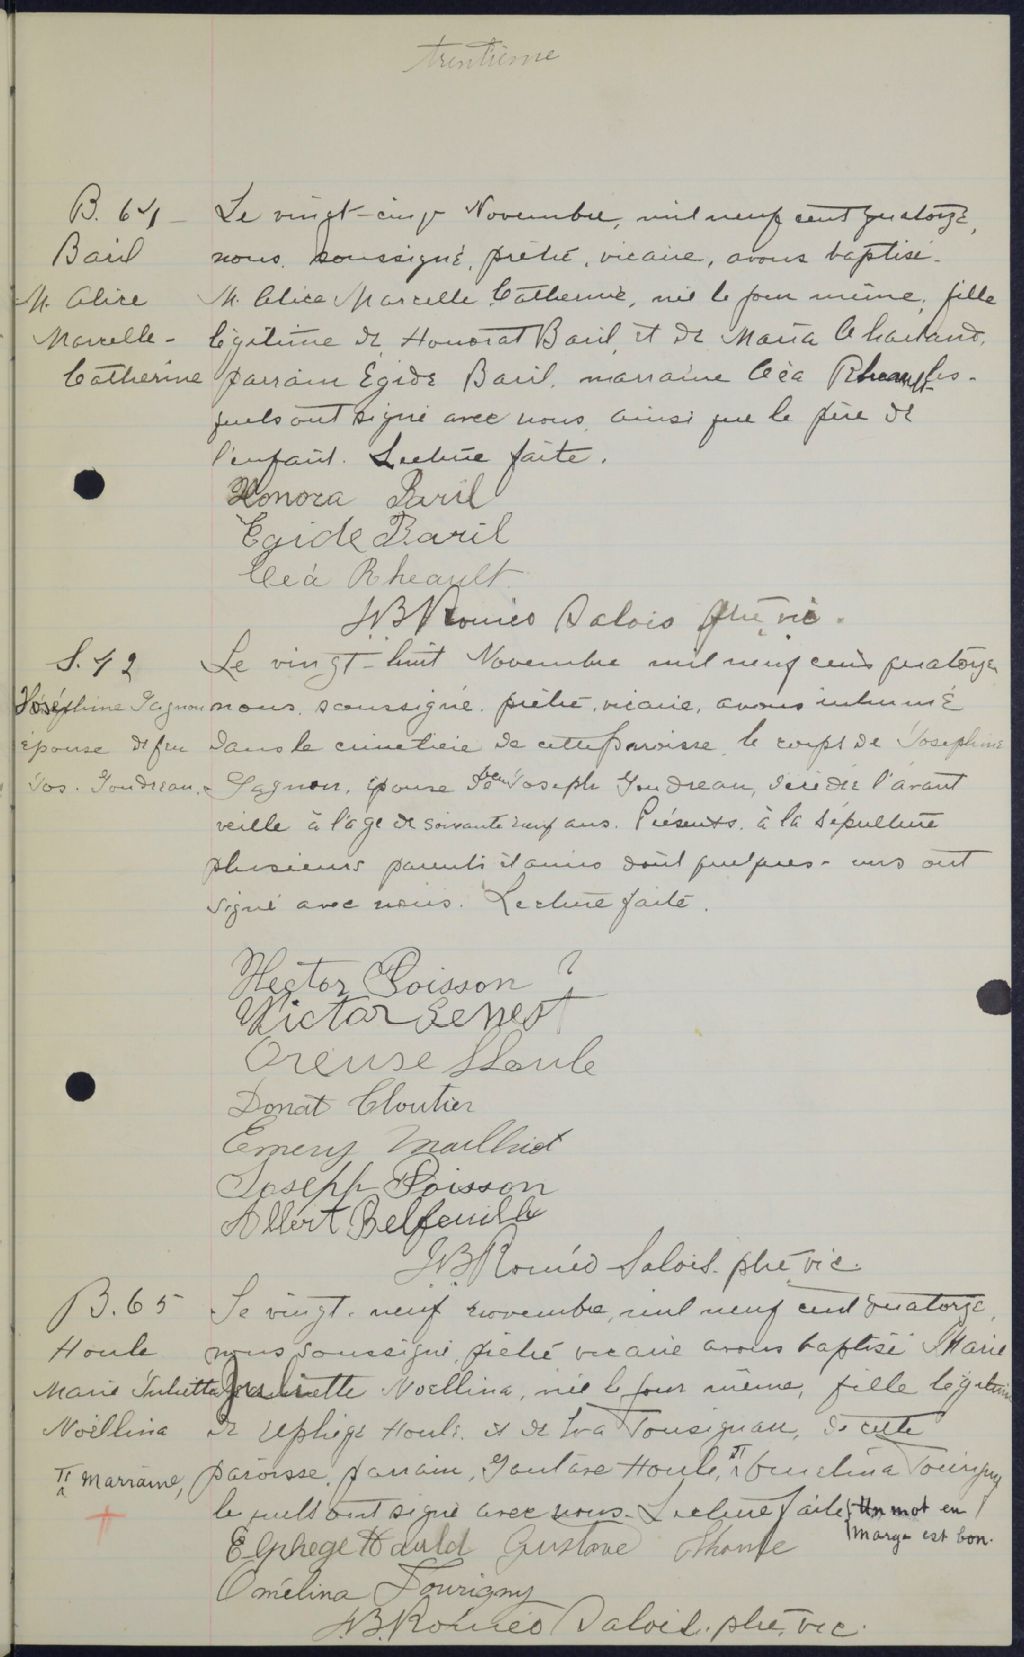 trentième
B. 64 - Le vingt-cinq Novembre, mil neuf cent quatorze,
Baril nous, soussigné, prêtre, vicaire, avons baptisé
M. Alice M. Alice Marcelle Catherine, née le jour même, fille
Marcelle - légitime de Honorat Baril et de Maria Chartrand,
Catherine parrain Egide Baril, marraine Cléa Rheault les-
quels ont signé avec nous ainsi que le père de
l'enfant. Lecture faite.
Honora Baril
Egide Baril
Cléa Rheault
J.B. Roméo Salois ptre vic.
S. 42 Le vingt-huit Novembre mil neuf cent quatorze
Joséphine Gagnon nous, soussigné, prêtre, vicaire, avons inhumé
épouse de feu dans le cimetière de cette paroisse le corps de Joséphine
Jos. Goudreau. Gagnon, épouse de feu Joseph Goudreau, décédée l'avant
veille à l'age de soixante neuf ans. Présents à la sépulture
plusieurs parents et amis dont quelques-uns ont
signé avec nous. Lecture faite.
Hector Poisson
Victor Ernest
Oreuse Houle
Donat Cloutier
Emery Mailhiot
Joseph Poisson
Albert Belfeuille
J.B. Roméo Salois ptre vic.
B. 65 Le vingt-neuf novembre, mil neuf cent quatorze,
Houle nous soussigné, prêtre vicaire avons baptisé Marie
Marie Juliette Juliette Noëllina, née le jour même, fille légitime
Noëllina de Elphège Houle et de Eva Tousignan, de cette
π marraine, paroisse, parrain, Gustave Houle, π Omelina Tourigny
lesquels ont signé avec nous. Lecture faite. Un mot en
marge est bon.
Elphege Hould Gustave Houle
Omélina Tourigny
J.B. Roméo Salois. ptre, vic.